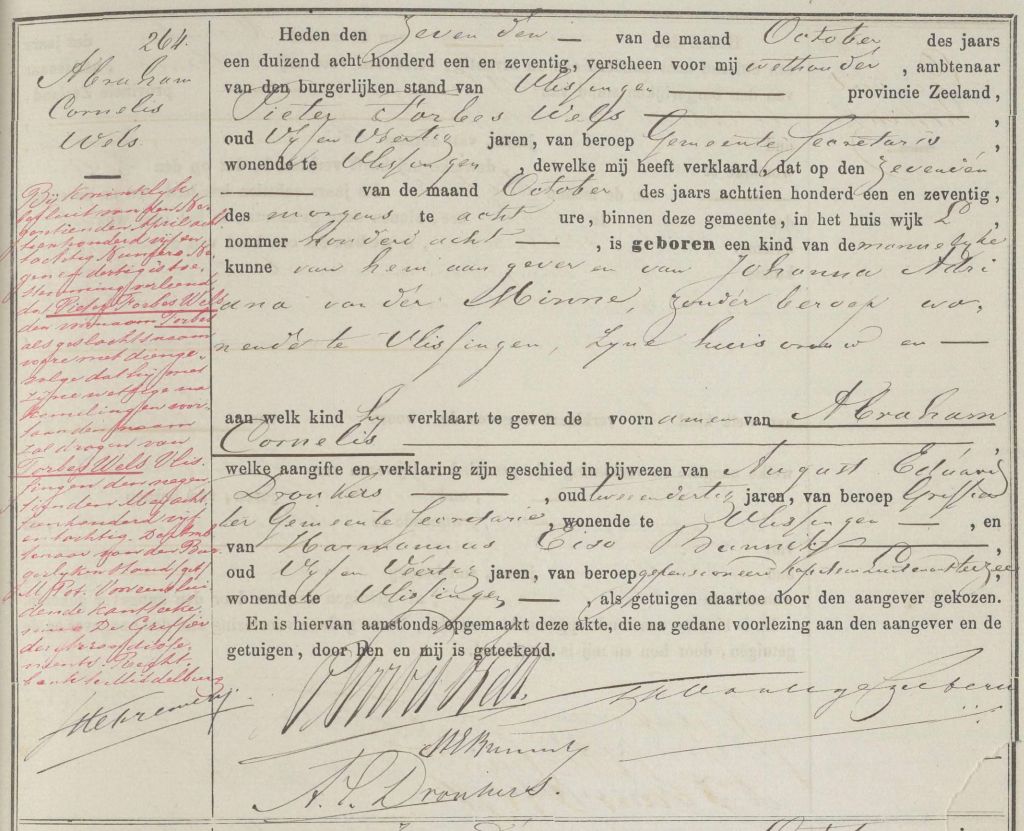 264.
Abraham
Cornelis
Wels.
Bij Koninklijk
besluit van den
tienden April acht
tienhonderd vijf en
tachtig Numero
gen en dertig is toe
stemming verleend
dat Pieter Forbes Wels
den voornaam Forbes
als geslachtsnaam
voere met dienge
volge dat hij met
zijne wettige na
komelingen voor
taan den naam
zal dragen van
Forbes Wels Vlis
singen den negen
tienden Mei acht
tienhonderd vijf
en tachtig. De Amb
tenaar van den Bur
gerlijken Stand (get)
Voor eenslui
dende kantteeke
ning De Griffier
der Arrondisse
ments Regt
bank te Middelburg
Heden den Zevenden van de maand October des jaars
een duizend acht honderd een en zeventig, verscheen voor mij wethouder, ambtenaar
van den burgerlijken stand van Vlissingen provincie Zeeland,
Pieter Forbes Wels,
oud Vijf en Veertig jaren, van beroep Gemeente Secretaris,
wonende te Vlissingen, dewelke mij heeft verklaard, dat op den Zevenden
van de maand October des jaars achttien honderd een en zeventig,
des morgens te acht ure, binnen deze gemeente, in het huis wijk
nommer honderd acht, is geboren een kind van de mannelijke
kunne van hem aangever en van Johanna Adri
ana van der Minne, zonder beroep wo-
nende te Vlissingen, zijne huisvrouw en
aan welk kind hij verklaart te geven de voornamen van Abraham
Cornelis
welke aangifte en verklaring zijn geschied in bijwezen van August Eduard
Dronkers, oud twee en dertig jaren, van beroep Griffier
der Gemeente Secretarie, wonende te Vlissingen, en
van Harmannus Eiso Bunnik,
oud Vijf en Veertig jaren, van beroep gepensioneerd kapitein Luitenant ter zee
wonende te Vlissingen, als getuigen daartoe door den aangever gekozen.
En is hiervan aanstonds opgemaakt deze akte, die na gedane voorlezing aan den aangever en de
getuigen, door hen en mij is geteekend.
Forbes Wels
HEBunnik
A. E. Dronkers.